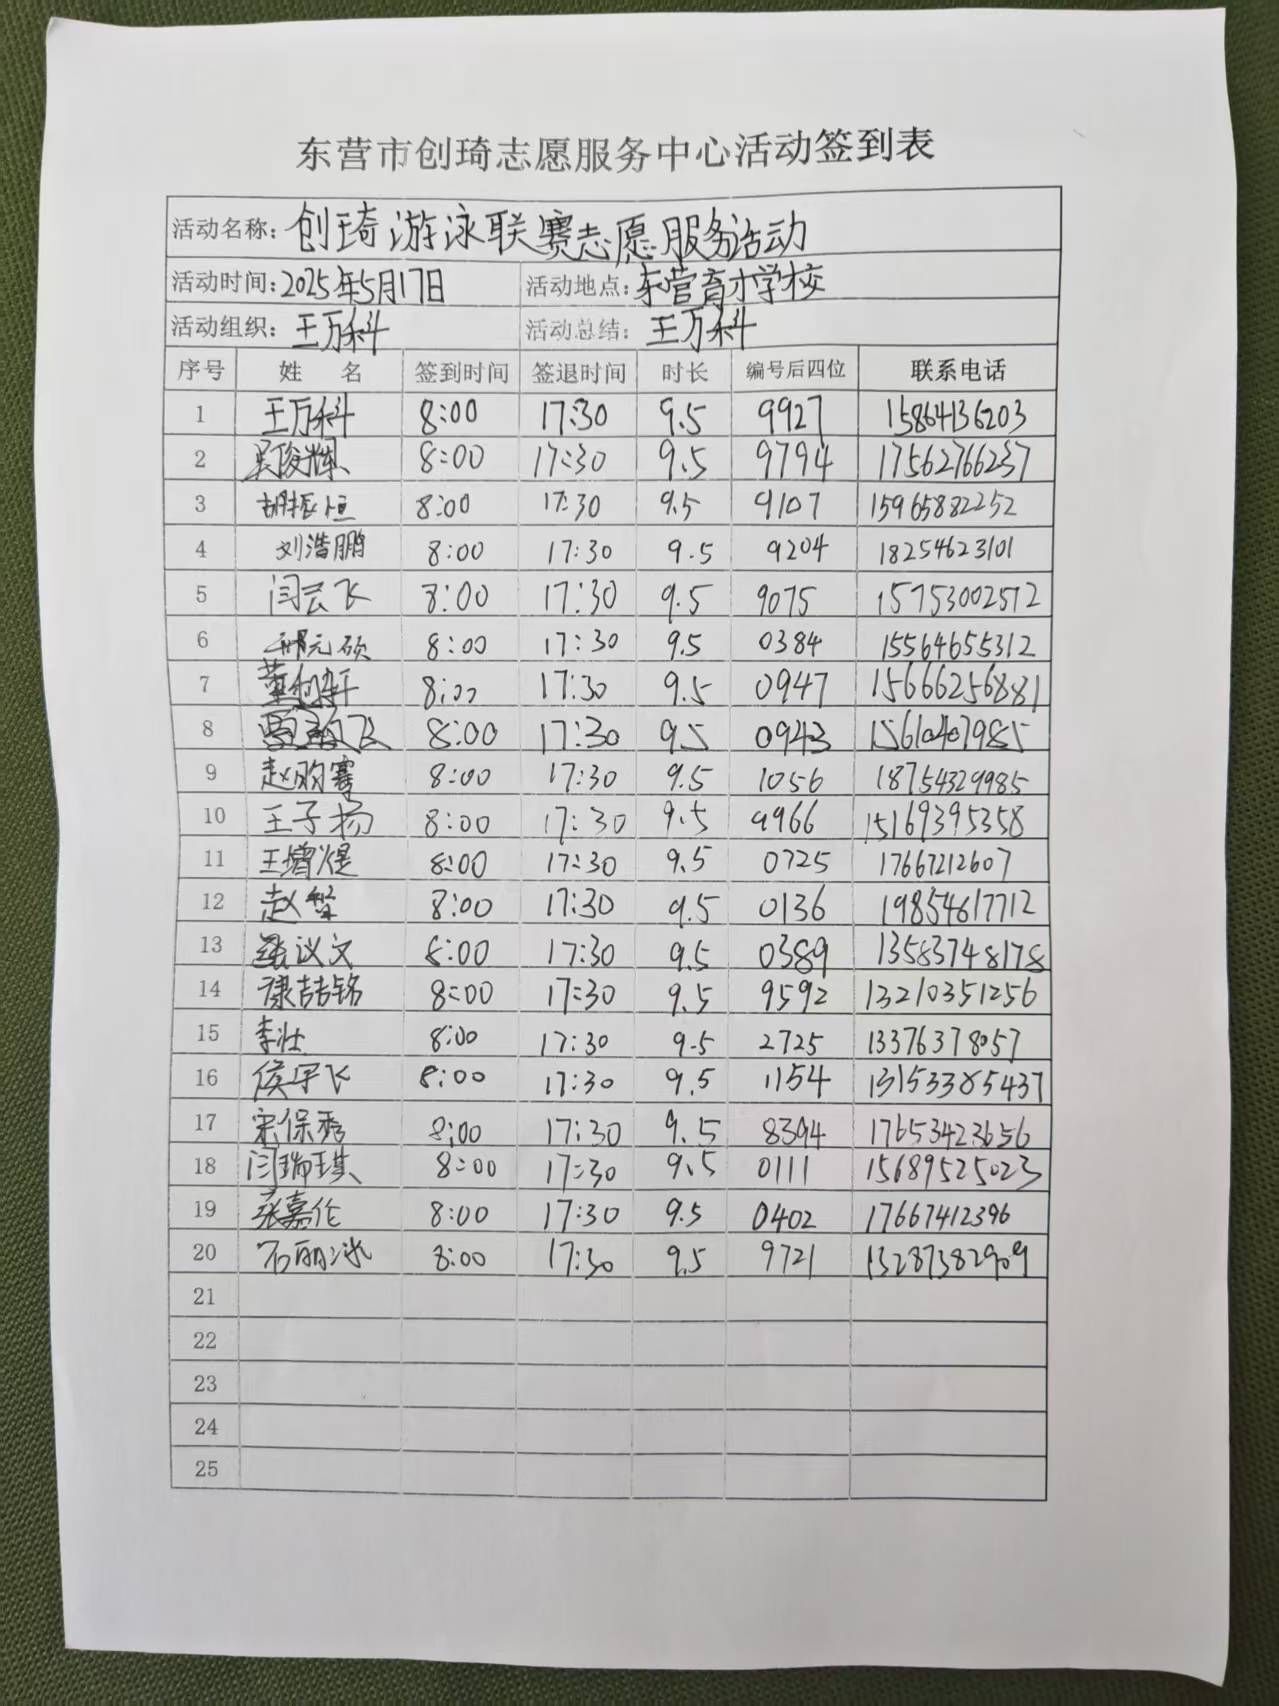 东营市创琦志愿服务中心活动签到表
活动名称: 创琦游泳联赛志愿服务活动
活动时间: 2025年5月17日 活动地点: 东营育才学校
活动组织: 王万科 活动总结: 王万科
序号 姓 名 签到时间 签退时间 时长 编号后四位 联系电话
1 王万科 8:00 17:30 9.5 9927 15864136203
2 吴俊辉 8:00 17:30 9.5 9794 17562766237
3 胡振恒 8:00 17:30 9.5 9107 15965882252
4 刘浩鹏 8:00 17:30 9.5 9204 18254623101
5 闫云飞 8:00 17:30 9.5 9075 15753002572
6 8:00 17:30 9.5 0384 15564655312
7 8:00 17:30 9.5 0947 15666256881
8 8:00 17:30 9.5 0943
9 8:00 17:30 9.5 1056 18754329985
10 王子扬 8:00 17:30 9.5 9966 15169395358
11 王增煜 8:00 17:30 9.5 0725 17667212607
12 8:00 17:30 9.5 0136 19854617712
13 8:00 17:30 9.5 0389 13583748178
14 康喆铭 8:00 17:30 9.5 9592 13210351256
15 李壮 8:00 17:30 9.5 2725 13376378057
16 8:00 17:30 9.5 1154
17 宋保秀 8:00 17:30 9.5 8394 17653423656
18 闫瑞琪 8:00 17:30 9.5 0111 15689525023
19 张嘉伦 8:00 17:30 9.5 0402 17667412396
20 石丽冰 8:00 17:30 9.5 9721 13287382909
21
22
23
24
25